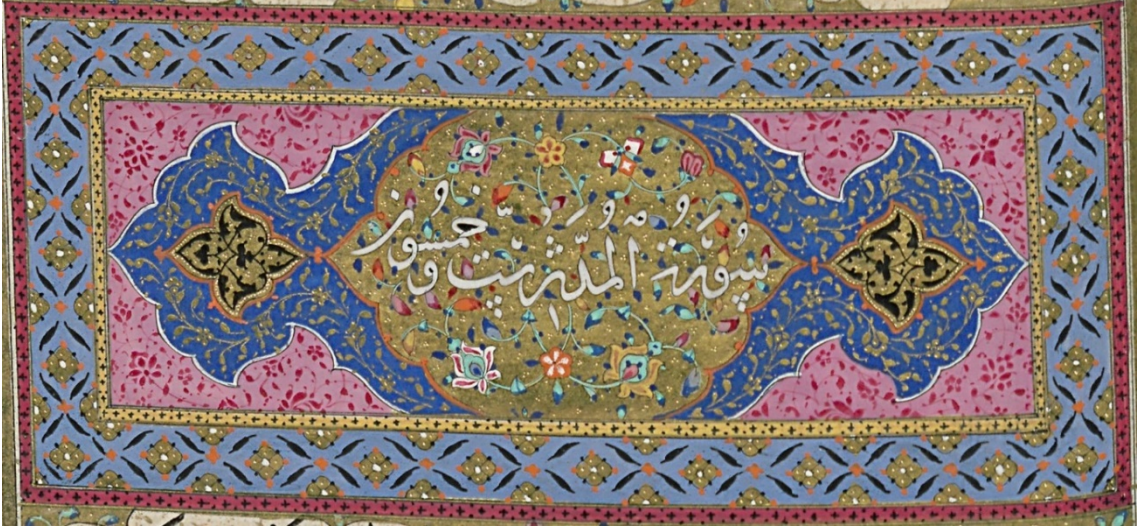 سُورَةُ المدّثّر ستّ وخمسون